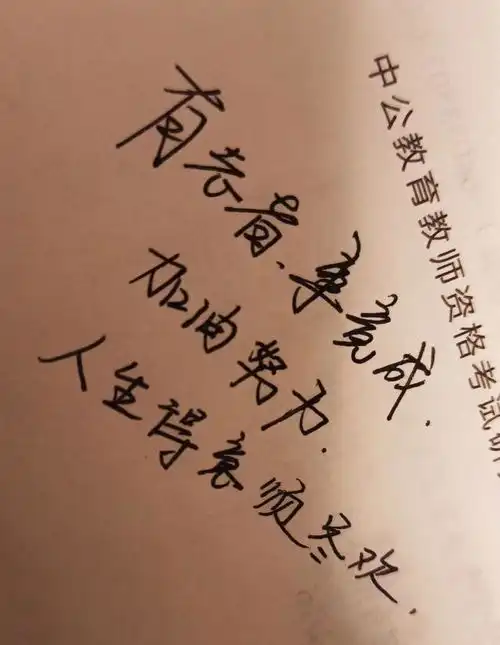 中公教育教师资格考试研
有志者、事竟成.
加油努力.
人生得意须尽欢.